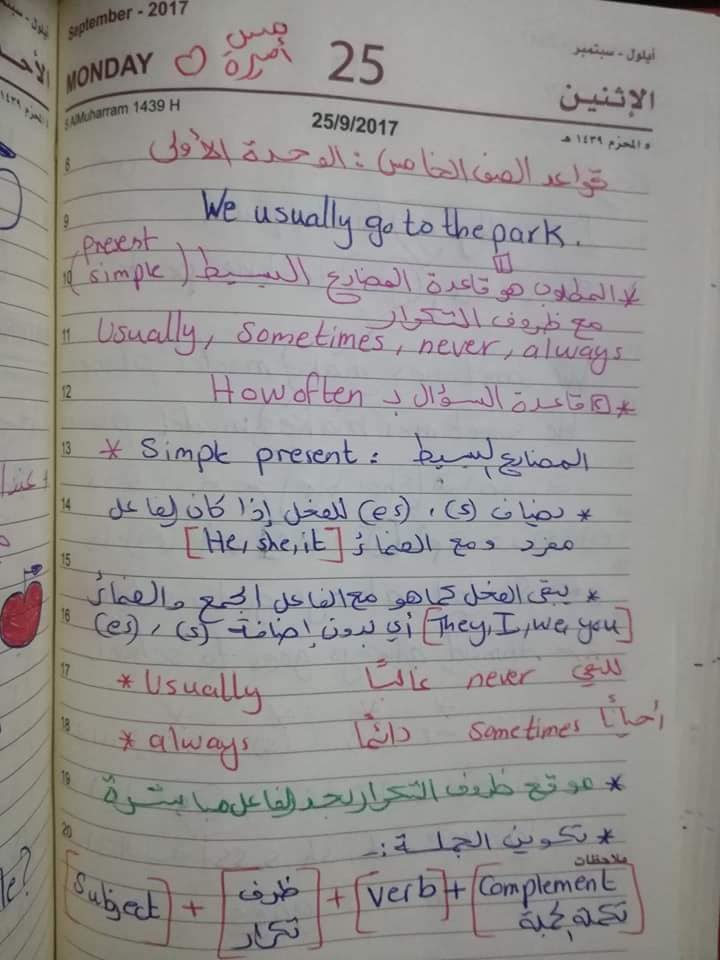 September - 2017
أيلول - سبتمبر
MONDAY
مس أميرة
25
الإثنين
5 AlMuharram 1439 H
25/9/2017
٥ المحرم ١٤٣٩ هـ
8
قواعد الصف الخامس : الوحدة الأولى
9
We usually go to the park.
10
* المطلوب هو قاعدة المضارع البسيط (present simple)
مع ظروف التكرار
11 Usually, Sometimes, never, always
12
* قاعدة السؤال بـ How often
13 * Simple present : المضارع البسيط
14
* يضاف (s) ، (es) للفعل إذا كان الفاعل
مفرد ومع الضمائر [He, she, it]
15
* يبقى الفعل كما هو مع الفاعل الجمع والضمائر
16
[They, I, we, you] أي بدون إضافة (s) ، (es)
17 * Usually غالباً never للنفي
18 * always دائماً sometimes أحياناً
19
* موقع ظروف التكرار بعد الفاعل مباشرة
20
* تكوين الجملة :-
ملاحظات
[Subject] + [ظرف تكرار] + [verb] + [Complement تكملة لجملة]